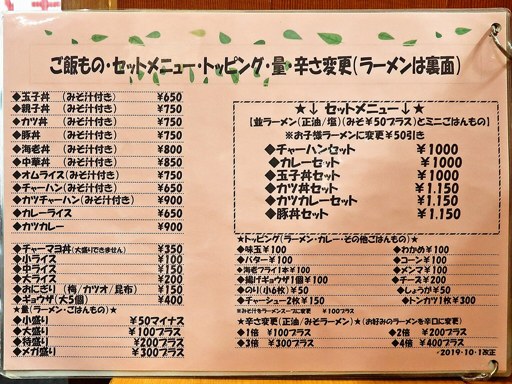 ご飯もの・セットメニュー・トッピング・量 辛さ変更(ラーメンは裏面)
◆玉子丼 (みそ汁付き) ¥650
◆親子丼 (みそ汁付き) ¥750
◆カツ丼 (みそ汁付き) ¥750
◆豚丼 (みそ汁付き) ¥750
◆海老丼 (みそ汁付き) ¥800
◆中華丼 (みそ汁付き) ¥850
◆オムライス(みそ汁付き) ¥750
◆チャーハン(みそ汁付き) ¥650
◆カツチャーハン(みそ汁付き) ¥900
◆カレーライス ¥650
◆カツカレー ¥900
◆チャーマヨ丼(大盛りできません) ¥350
◆小ライス ¥100
◆中ライス ¥150
◆大ライス ¥200
◆おにぎり (梅/カツオ/昆布) ¥150
◆ギョウザ(大5個) ¥400
★量(ラーメン・ごはんもの)★
◆小盛り ¥50マイナス
◆大盛り ¥100プラス
◆特盛り ¥200プラス
◆メガ盛り ¥300プラス
★↓ セットメニュー↓★
【並ラーメン(正油/塩)(みそ¥50プラス)とミニごはんもの】
※お子様ラーメンに変更¥50引き
◆チャーハンセット ¥1000
◆カレーセット ¥1000
◆玉子丼セット ¥1000
◆カツ丼セット ¥1.150
◆カツカレーセット ¥1.150
◆豚丼セット ¥1.150
★トッピング(ラーメン・カレー・その他ごはんもの)★
◆味玉¥100 ◆わかめ¥100
◆バター¥100 ◆コーン¥100
◆海老フライ1本¥100 ◆メンマ¥100
◆揚げギョウザ1個¥100 ◆チーズ¥200
◆のり(小6枚)¥50 ◆しょうが¥50
◆チャーシュー2枚¥150 ◆トンカツ1枚¥300
※みそ汁をラーメンスープに変更 ¥100プラス
★辛さ変更(正油/みそラーメン)★(お好みのラーメンを辛口に変更)
◆1倍 ¥100プラス ◆2倍 ¥200プラス
◆3倍 ¥300プラス ◆4倍 ¥400プラス
✓2019・10・1改正